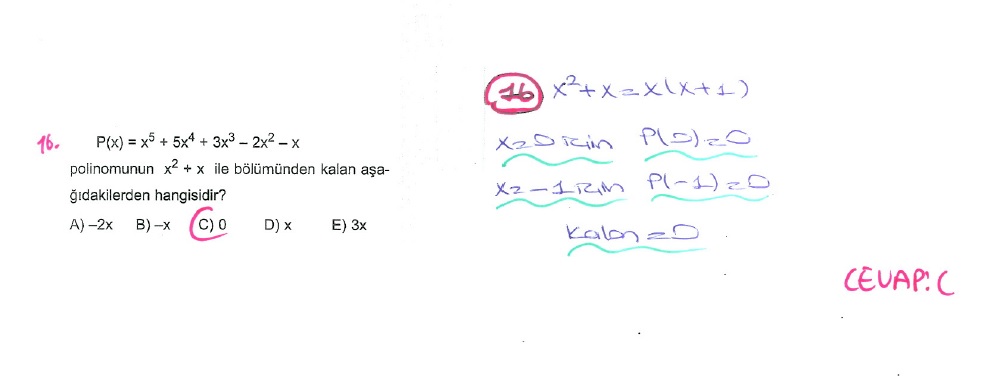 16. P(x) = x⁵ + 5x⁴ + 3x³ – 2x² – x
polinomunun x² + x ile bölümünden kalan aşa-
ğıdakilerden hangisidir?
A) –2x B) –x C) 0 D) x E) 3x
16 x²+x=x(x+1)
x=0 için P(0)=0
x=-1 için P(-1)=0
Kalan=0
CEVAP: C